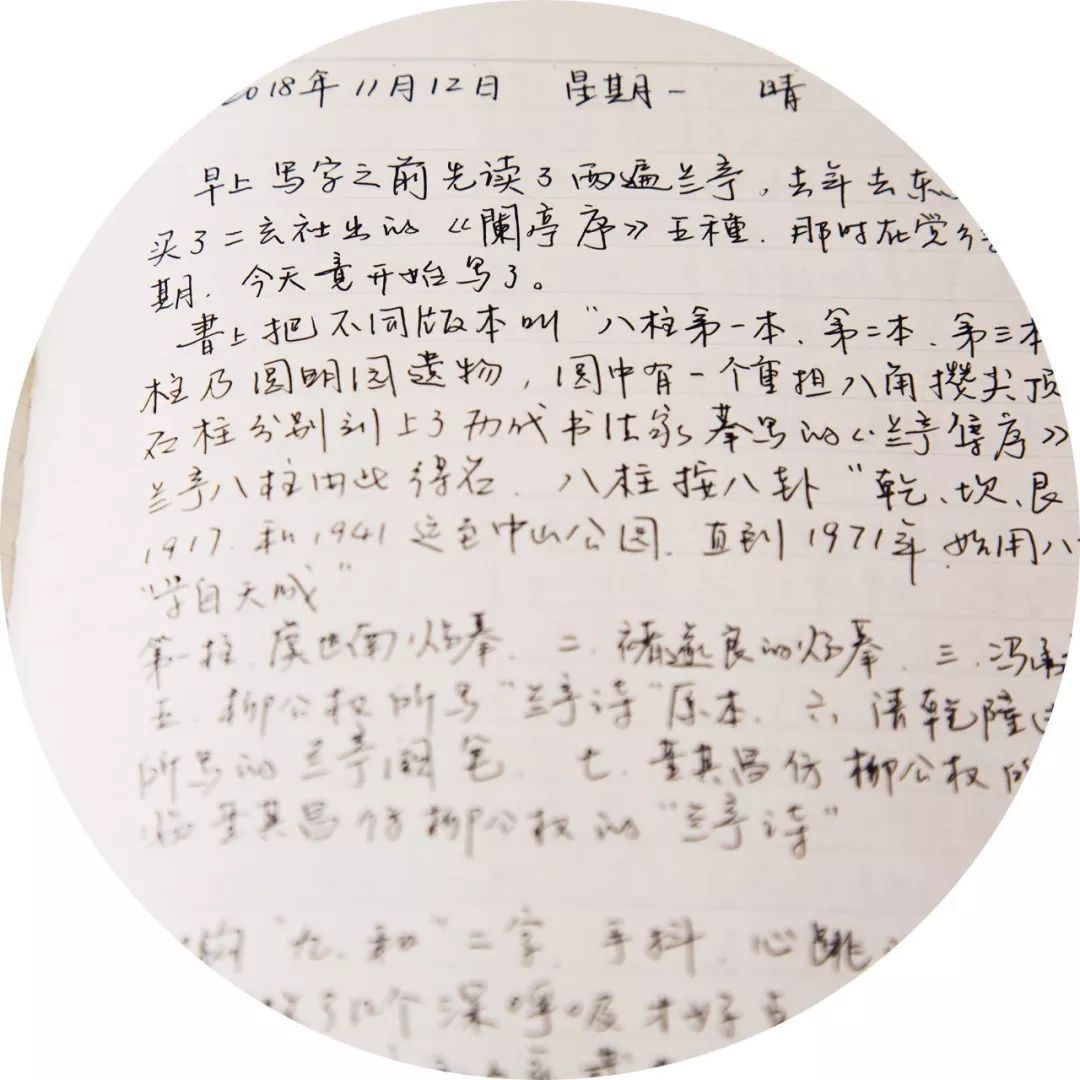 2018年11月12日 星期一 晴
早上写字之前先读了两遍兰亭。去年去东
买了二玄社出的《蘭亭序》五種.那时在觉分
期.今天竟开始写了。
書上把不同版本叫"八柱第一本、第二本、第三本
柱乃圆明园遗物,园中有一个重担八角攒尖顶
石柱分别刻上了历代书法家摹写的《兰亭集序》
兰亭八柱由此得名.八柱按八卦"乾、坎、艮
1917.和1941运至中山公园.直到1971年始用八
"学自天成"
第一柱.虞世南临摹.二.褚遂良的临摹.三.冯承
五.柳公权所写"兰亭诗"原本.六.清乾隆
所写的兰亭 笔.七.董其昌仿柳公权所
临董其昌仿柳公权的"兰亭诗"
"九、和"二字.手抖.心跳
了几个深呼吸才好